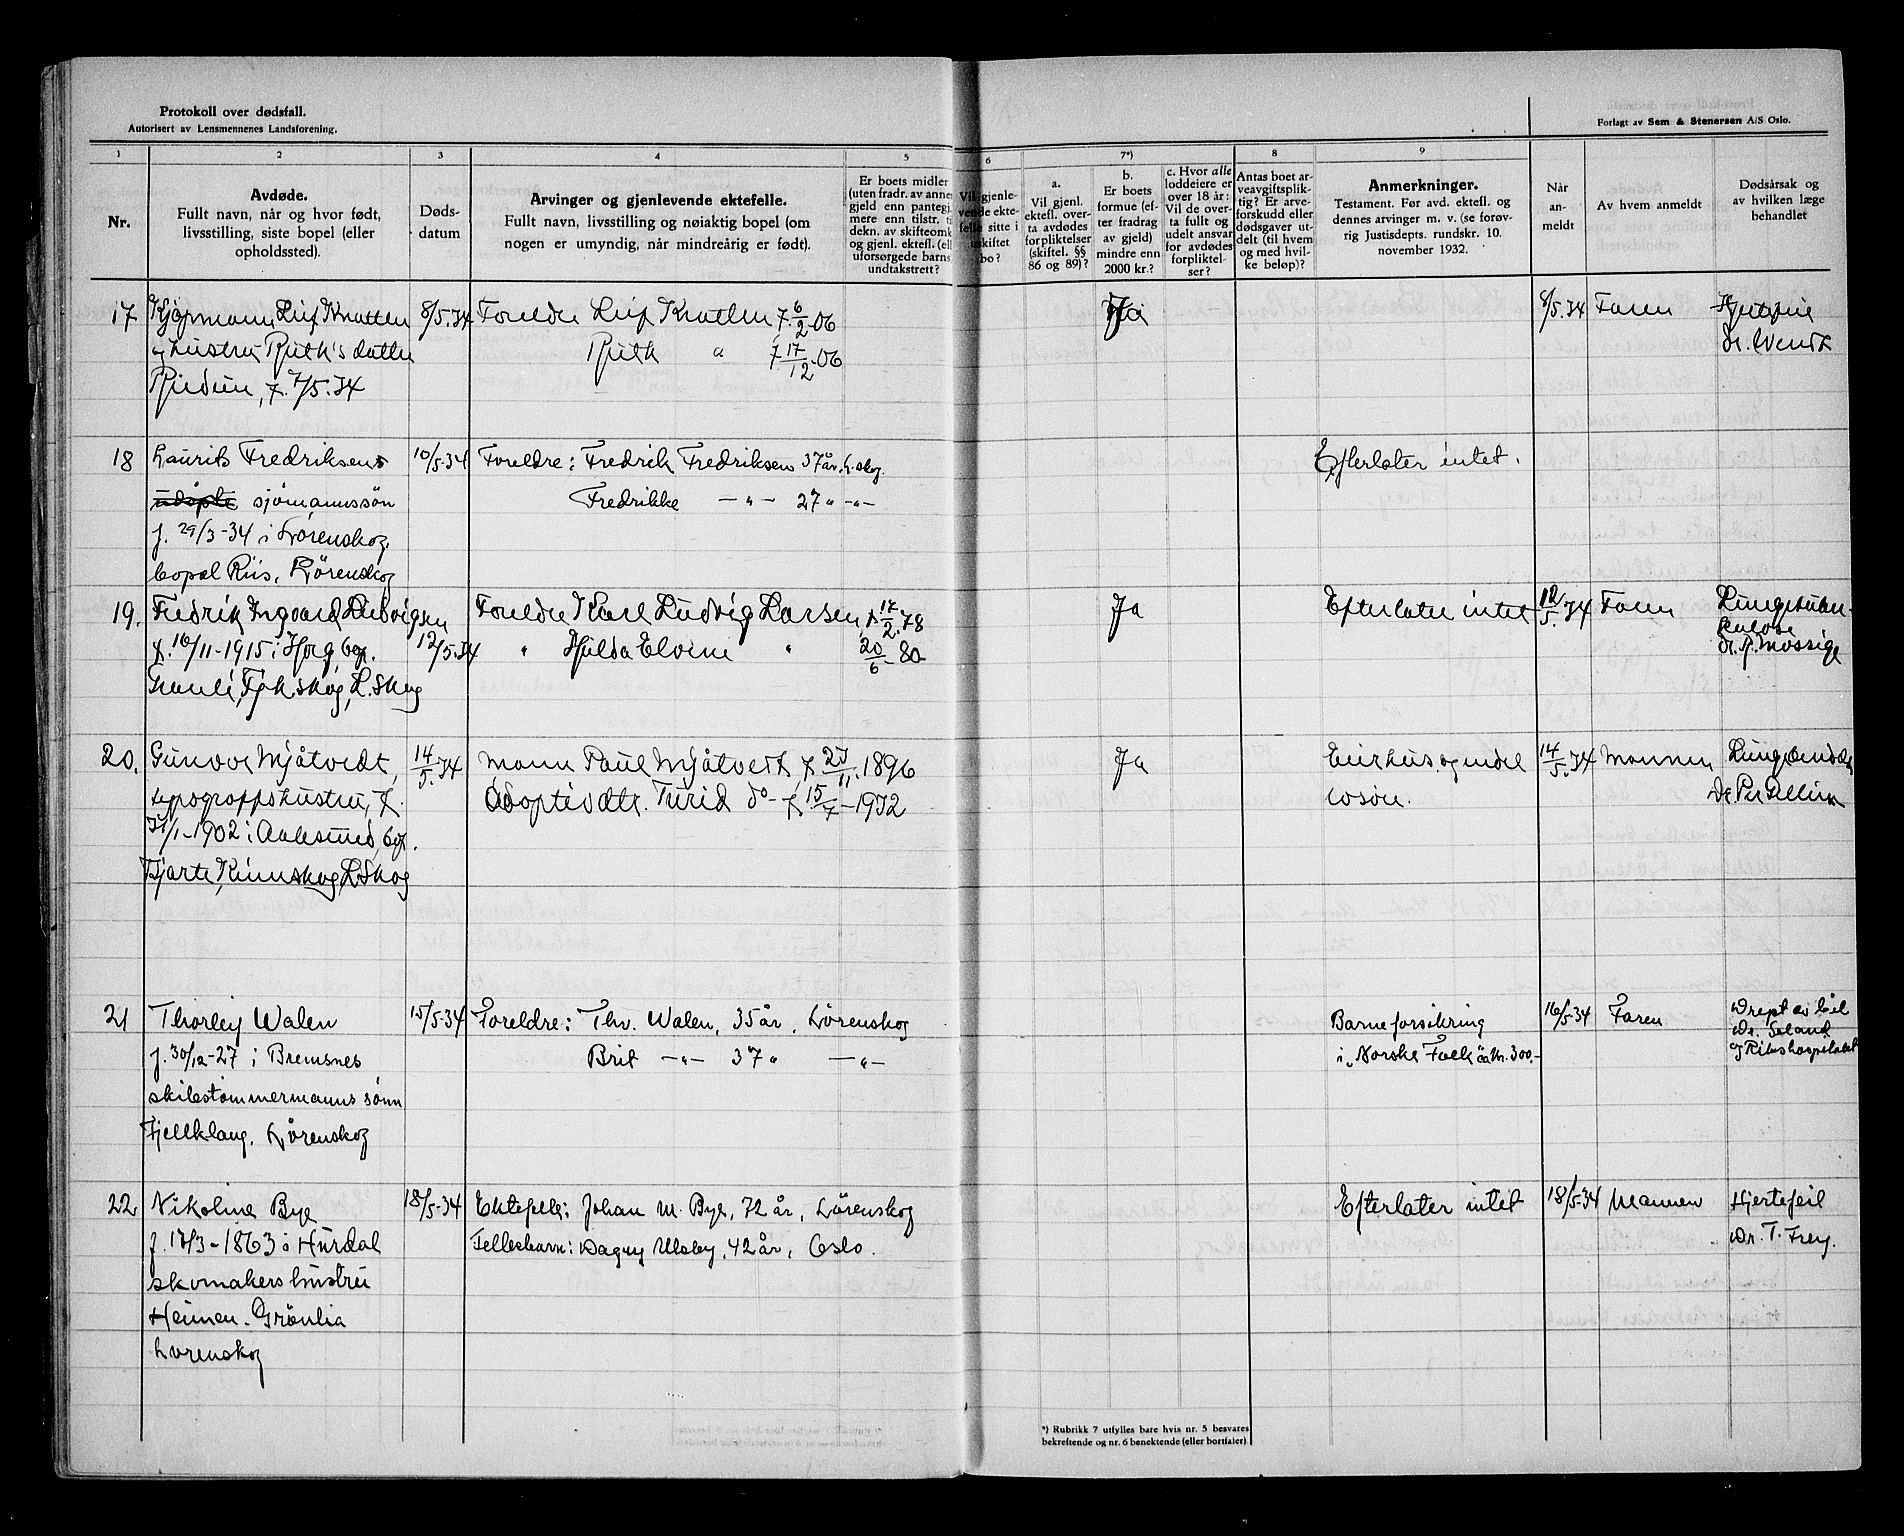 Protokoll over dødsfall.
Autorisert av Lensmennenes Landsforening.
Forlagt av Sem & Stenersen A/S Oslo.
1 2 3 4 5 6 7*) 8 9
Nr.
Avdøde.
Fullt navn, når og hvor født,
livsstilling, siste bopel (eller
opholdssted).
Døds-
datum
Arvinger og gjenlevende ektefelle.
Fullt navn, livsstilling og nøiaktig bopel (om
nogen er umyndig, når mindreårig er født).
Er boets midler
(uten fradr. av annen
gjeld enn pantegj
mere enn tilstr. ti
dekn. av skifteomk
og gjenl. ektefl. (el
uforsørgede barns
undtakstrett?
Vil gjenle-
vende ekte-
felle sitte i
uskiftet
bo?
a.
Vil gjenl.
ektefl. over-
ta avdødes
forpliktelser
(skiftel. §§
86 og 89)?
b.
Er boets
formue (ef-
ter fradrag
av gjeld)
mindre enn
2000 kr.?
c. Hvor alle
loddeiere er
over 18 år:
Vil de over-
ta fullt og
udelt ansvar
for avdødes
forpliktel-
ser?
Antas boet ar-
veavgiftsplik-
tig? Er arve-
forskudd eller
dødsgaver ut-
delt (til hvem
og med hvil-
ke beløp)?
Anmerkninger.
Testament. Før avd. ektefl. og
dennes arvinger m. v. (se forøv-
rig Justisdepts. rundskr. 10.
november 1932.
Når
an-
meldt
Av hvem anmeldt
Dødsårsak og
av hvilken læge
behandlet
17 Kjøpmann Leif Knatten 8/5.34 Foreldre Leif Knatten f. 6/2.06 Ja 8/5.34 Faren Hjertefeil
og hustru Ruth's datter Ruth " f 17/12.06 dr. Wendt
f. 7/5.34
18 Laurits Fredriksen 10/5-34 Foreldre: Fredrik Fredriksen 37 år, L.skog. Efterlater intet.
udøpte sjömannssön Fredrikke -"- 27 " -"-
f. 29/3-34 i Lørenskog.
bopel Riis, Lörenskog
19. Fredrik Ingvard Ludvigsen 12/5.34 Foreldre Karl Ludvig Larsen f. 17/2.78 Ja Efterlater intet 12/5.34 Faren Lungetuber-
f. 16/11-1915 i bop. " Hjalda Elvine " 20/6-80 kulose
L.skog dr. Mossige
20. Gunvor Mjåtvedt, 14/5.34 Mann Paul Mjåtvedt f. 23/11.1896 Ja Eier hus og endel 14/5.34 Mannen
typografhustru, f. Adoptivdtr. Turid do- f. -1932 løsøre.
31/1-1902 i Aalesund, bop.
L.Skog
21 Thorleif Walen 15/5-34 Foreldre: Thv. Walen, 35 år, Lörenskog Barneforsikring 16/5-34 Faren Drept av bil
f. 30/12-27 i Bremsnes Brit -"- 37 " -"- i "Norske Folk" ca kr. 300.- Dr. Seland
skibstömmermanns sönn og Rikshospitalet
Fjellklang, Lörenskog
22 Nikoline Bye 18/5-34 Ektefelle: Johan M. Bye, 72 år, Lörenskog Efterlater intet 18/5-34 Mannen Hjertefeil
f. 17/3-1863 i Hurdal Fellesbarn: Dagny Ulsby, 42 år, Oslo. Dr. T. Frey.
skomakers hustru
Heimen. Grönlia
Lørenskog
*) Rubrikk 7 utfylles bare hvis nr. 5 besvares
bekreftende og nr. 6 benektende (eller bortfaller)